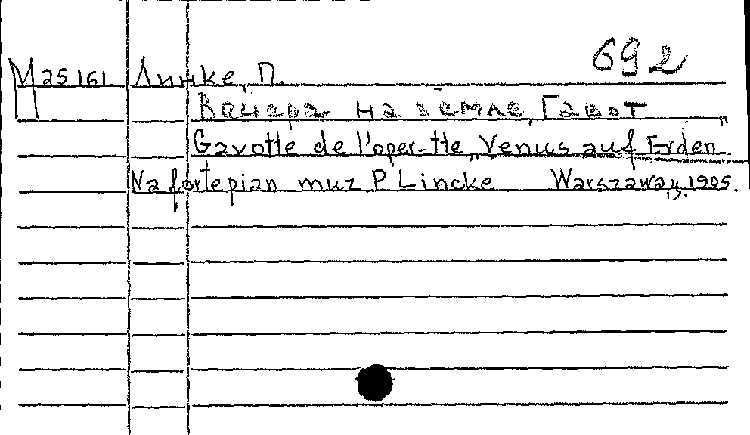 692
М 25161 Линке, П.
Венера на земле, Гавот
Gavotte de l'oper-tte „Venus auf Erden
Na fortepian muz P Lincke Warszawa, 1905.